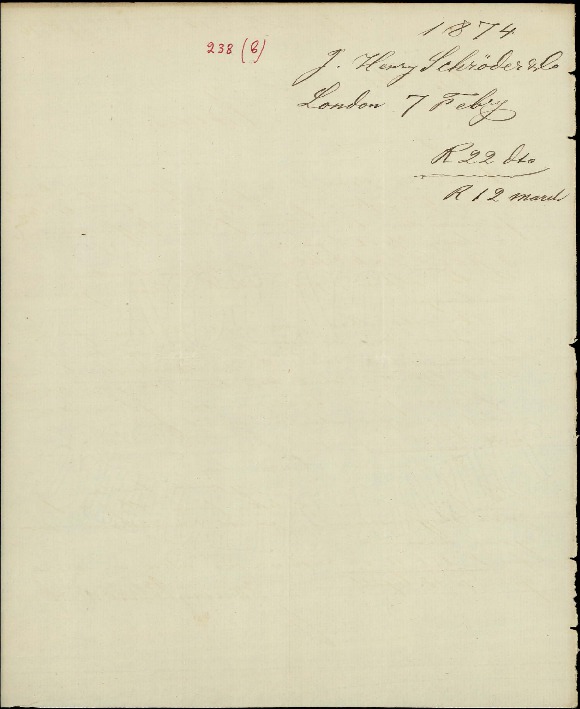 1874
238 (6)
J. Henry Schröder & Co
London 7 Febry
R 22 dto
R 12 march